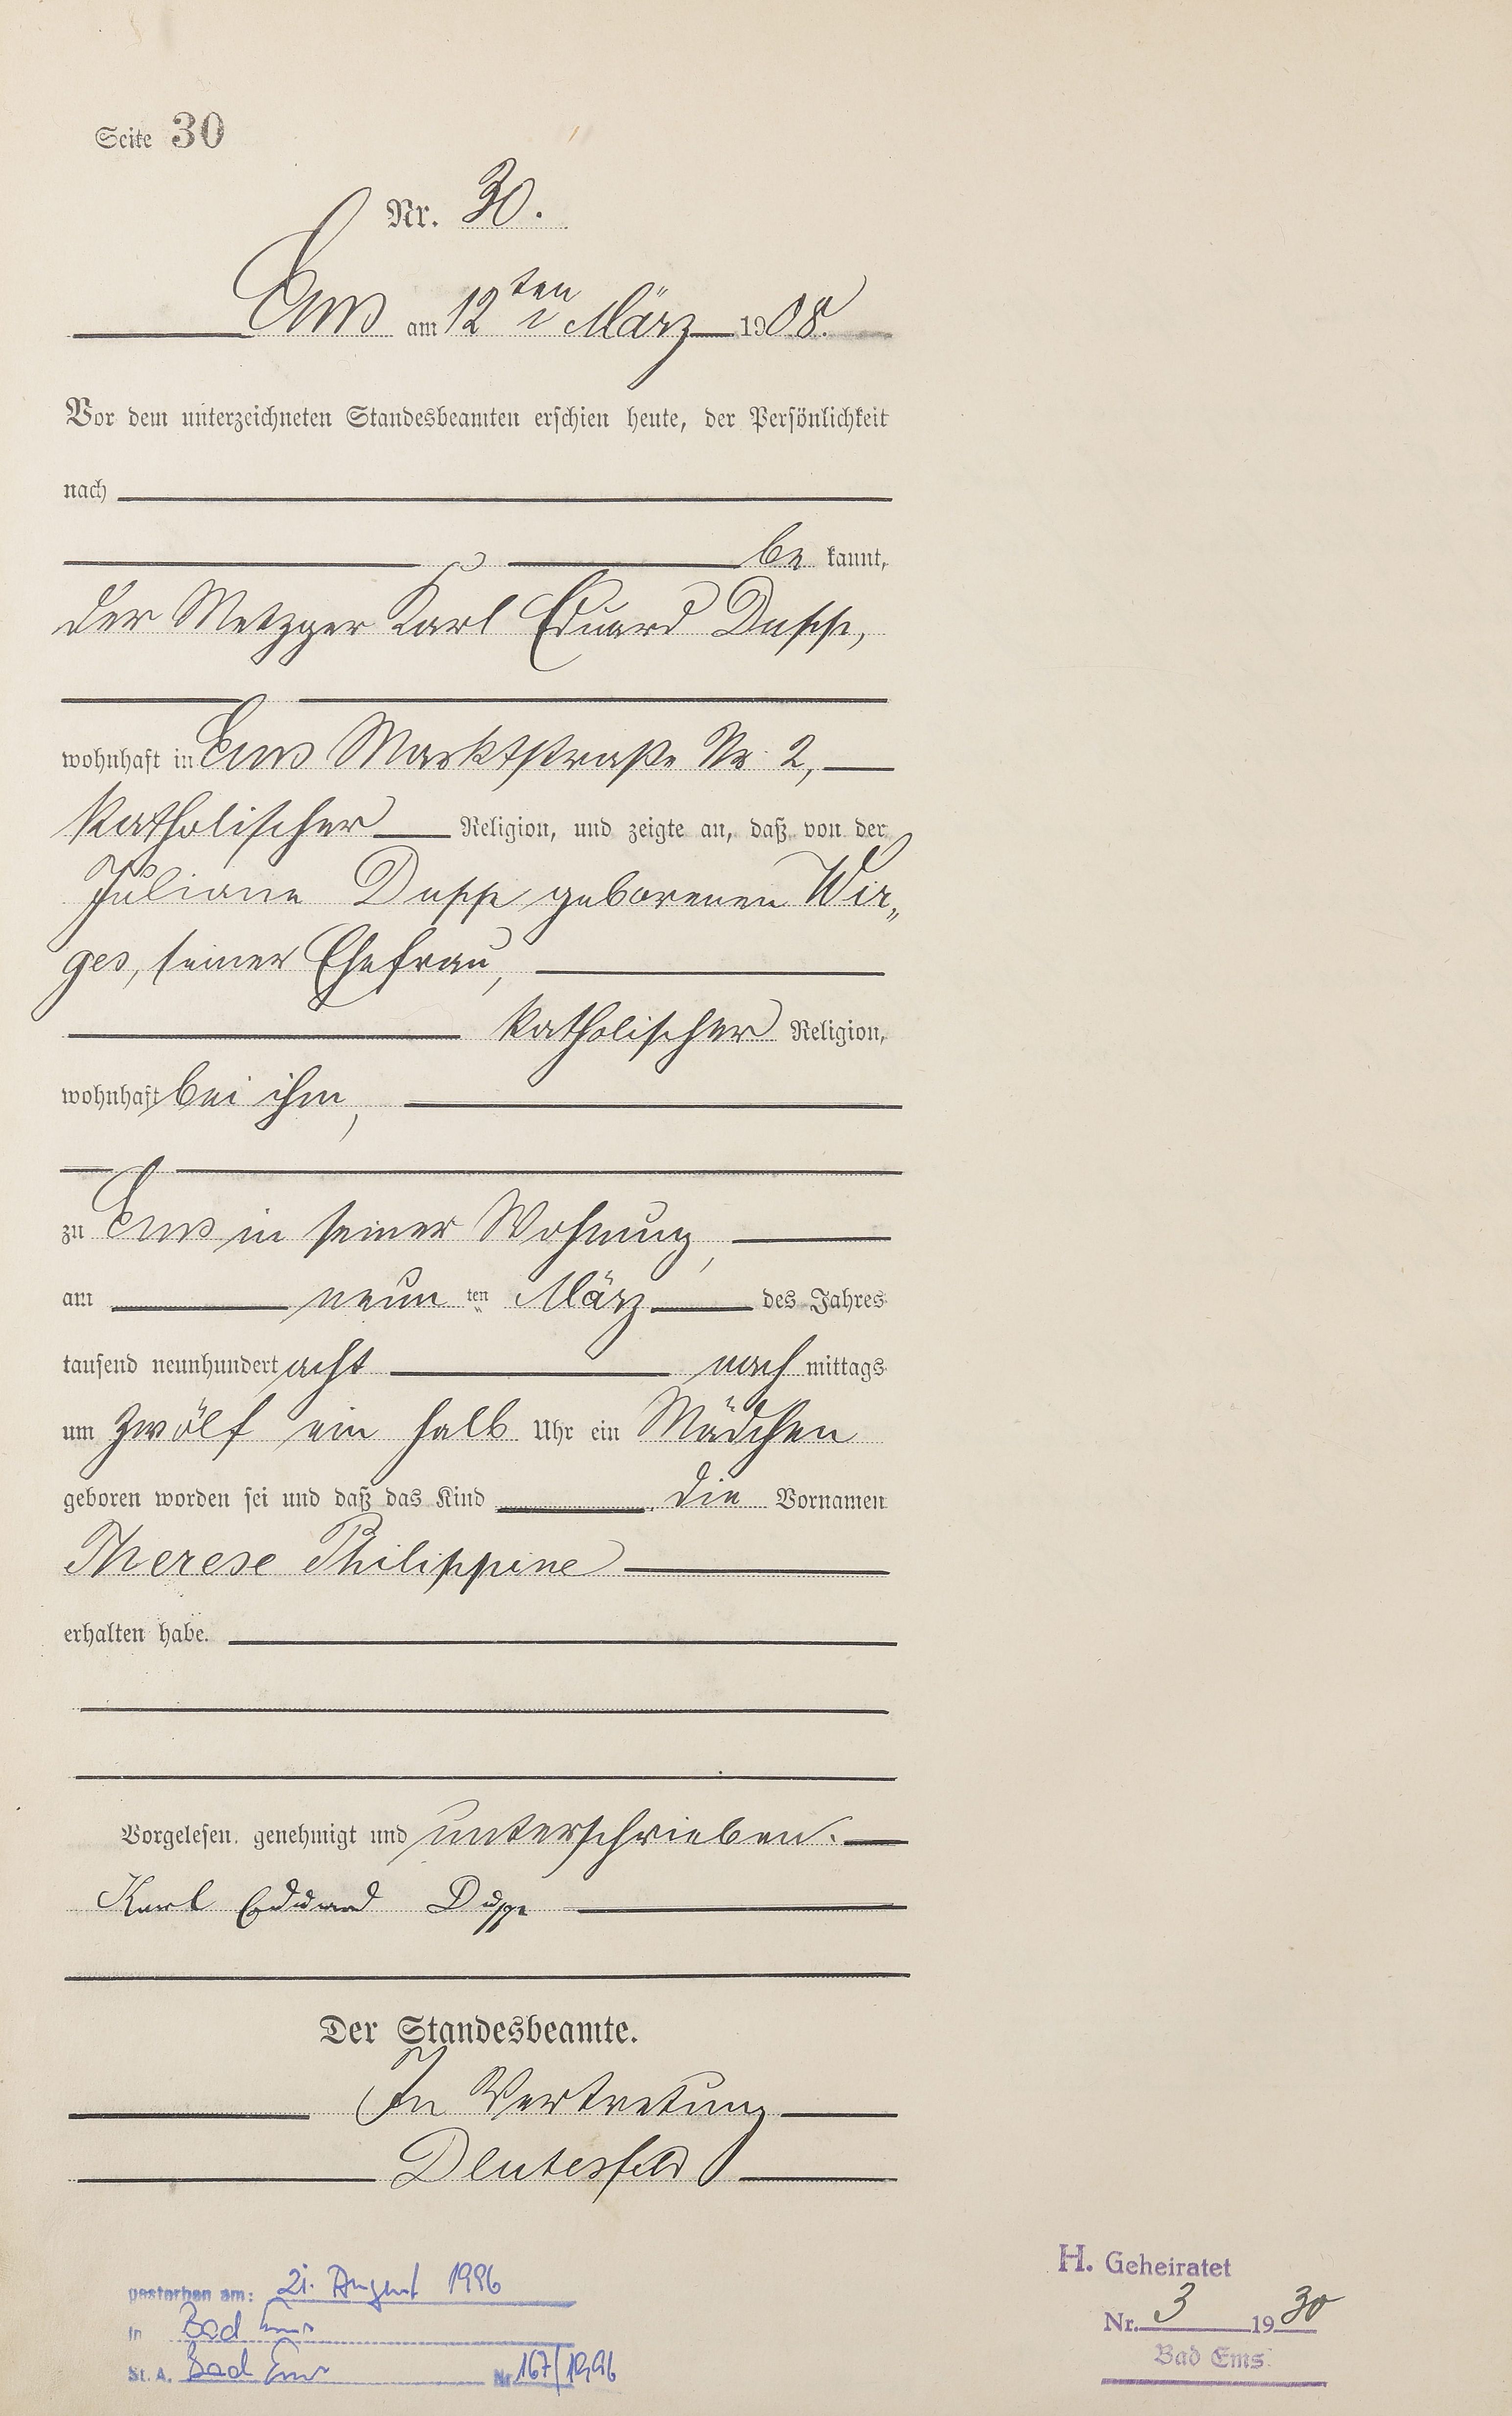 Seite 30
Nr. 30.
Ems am 12ten März 1908.
Vor dem unterzeichneten Standesbeamten erschien heute, der Persönlichkeit
nach
be kannt,
der Metzger Karl Eduard Duppe,
wohnhaft in Ems Marktstraße Nr. 2,
katholischer Religion, und zeigte an, daß von der
Juliane Duppe geborenen Wir„
ges, seiner Ehefrau,
katholischer Religion,
wohnhaft bei ihm,
zu Ems in seiner Wohnung,
am neun ten März des Jahres
tausend neunhundert acht nach mittags
um zwölf ein halb Uhr ein Mädchen
geboren worden sei und daß das Kind die Vornamen
Therese Philippine
erhalten habe.
Vorgelesen, genehmigt und unterschrieben.
Karl Eduard Duppe
Der Standesbeamte.
In Vertretung
gestorben am: 21. August 1996
in Bad Ems
St. A. Bad Ems Nr 167/1996
H. Geheiratet
Nr. 3 1930
Bad Ems